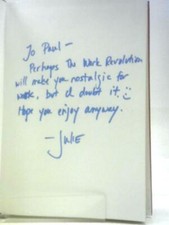 To Paul —
Perhaps The Work Revolution
will make you nostalgic for
work, but I doubt it. :)
Hope you enjoy anyway.
— Julie